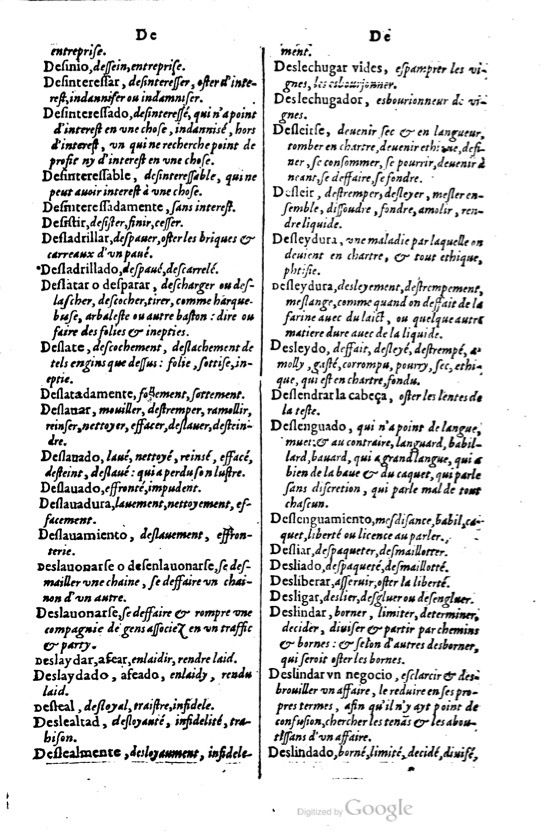 De
entreprise.
Desinio, dessein, entreprise.
Desinteressar, desinteresser, oster d'inte-
rest, indanniser ou indamniser.
Desinteressado, desinteressé, qui n'a point
d'interest en vne chose, indannisé, hors
d'interest, vn qui ne recherche point de
profit ny d'interest en vne chose.
Desinteressable, desinteressable, qui ne
peut auoir interest à vne chose.
Desinteressadamente, sans interest.
Desistir, desister, finir, cesser.
Desladrillar, despauer, oster les briques &
carreaux d'vn paué.
Desladrillado, despaué, descarrelé.
Deslatar o desparar, descharger ou des-
lascher, descocher, tirer, comme harque-
buse, arbaleste ou autre baston: dire ou
faire des folies & inepties.
Deslate, descochement, deslachement de
tels engins que dessus: folie, sottise, in-
eptie.
Deslatadamente, follement, sottement.
Deslauar, mouiller, destremper, ramollir,
reinser, nettoyer, effacer, deslauer, destein-
dre.
Deslauado, laué, nettoyé, reinsé, effacé,
desteint, deslaué: qui a perdu son lustre.
Deslauado, effronté, impudent.
Deslauadura, lauement, nettoyement, ef-
facement.
Deslauamiento, deslauement, effron-
terie.
Deslauonarse o desenlauonarse, se des-
mailler vne chaine, se deffaire vn chai-
non d'vn autre.
Deslauonarse, se deffaire & rompre vne
compagnie de gens associez en vn traffic
& party.
Deslaydar, afear, enlaidir, rendre laid.
Deslaydado, afeado, enlaidy, rendu
laid.
Desleal, desloyal, traistre, infidele.
Deslealtad, desloyauté, infidelité, tra-
hison.
Deslealmente, desloyaument, infidele-
De
ment.
Deslechugar vides, espamprer les vi-
gnes, les esbourjonner.
Deslechugador, esbourionneur de vi-
gnes.
Desleirse, deuenir sec & en langueur,
tomber en chartre, deuenir ethique, desi-
ner, se consommer, se pourrir, deuenir à
neant, se deffaire, se fondre.
Desleir, destremper, desleyer, mesler en-
semble, dissoudre, fondre, amolir, ren-
dre liquide.
Desleydura, vne maladie par laquelle on
deuient en chartre, & tout ethique,
phtisie.
Desleydura, desleyement, destrempement,
meslange, comme quand on deffait de la
farine auec du laict, ou quelque autre
matiere dure auec de la liquide.
Desleydo, deffait, desleyé, destrempé, a-
molly, gasté, corrompu, pourry, sec, ethi-
que, qui est en chartre, fondu.
Deslendrar la cabeça, oster les lentes de
la teste.
Deslenguado, qui n'a point de langue,
muet: & au contraire, languard, babil-
lard, bauard, qui a grand langue, qui a
bien de la baue & du caquet, qui parle
sans discretion, qui parle mal de tout
chascun.
Deslenguamiento, mesdisance, babil, ca-
quet, liberté ou licence au parler.
Desliar, despaqueter, desmaillotter.
Desliado, despaqueté, desmaillotté.
Desliberar, asseruir, oster la liberté.
Desligar, deslier, desgluer ou desengluer.
Deslindar, borner, limiter, determiner,
decider, diuiser & partir par chemins
& bornes: & selon d'autres desborner,
qui seroit oster les bornes.
Deslindar vn negocio, esclarcir & des-
brouiller vn affaire, le reduire en ses pro-
pres termes, afin qu'il n'y ayt point de
confusion, chercher les tenãs & les abou-
tissans d'vn affaire.
Deslindado, borné, limité, decidé, diuisé,
Digitized by Google